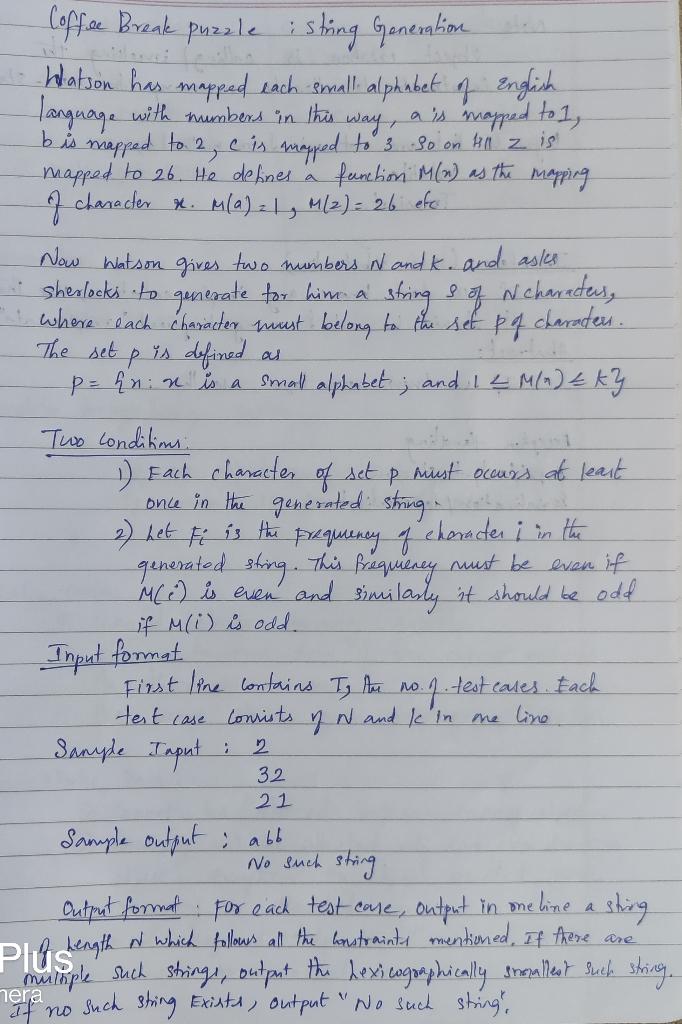 Coffee Break puzzle : string Generation
Watson has mapped each small alphabet of English
language with numbers in this way, a is mapped to 1,
b is mapped to 2, c is mapped to 3 so on till z is
mapped to 26. He defines a function M(x) as the mapping
of character x. M(a)=1, M(z)=26 etc
Now Watson gives two numbers N and K. and asks
sherlocks to generate for him a string S of N characters,
where each character must belong to the set p of characters.
The set p is defined as
p = {x: x is a small alphabet ; and 1 ≤ M(x) ≤ k}
Two Conditions:
1) Each character of set p must occurs at least
once in the generated string.
2) Let Fi is the Frequency of character i in the
generated string. This frequency must be even if
M(i) is even and similarly it should be odd
if M(i) is odd.
Input format
First line contains T, the no. of. test cases. Each
test case consists of N and k in one line
Sample Input : 2
32
21
Sample output : abb
No such string
Output format : For each test case, output in one line a string
of Length N which follows all the constraints mentioned. If there are
multiple such strings, output the Lexicographically smallest such string.
If no such string Exists, output "No such string".
Plus
nera